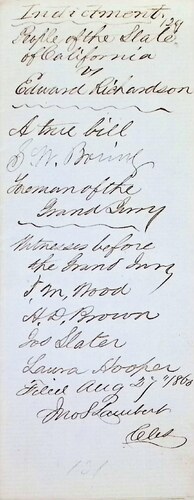 Indictment
People of the State
of California
vs
Edward Richardson
A true bill
Foreman of the
Grand Jury
Witnesses before
the Grand Jury
J. M, Wood
H. D. Brown
Jos Slater
Laura Hooper
Filed Aug 27th 1860
Jno Lambert
Clerk